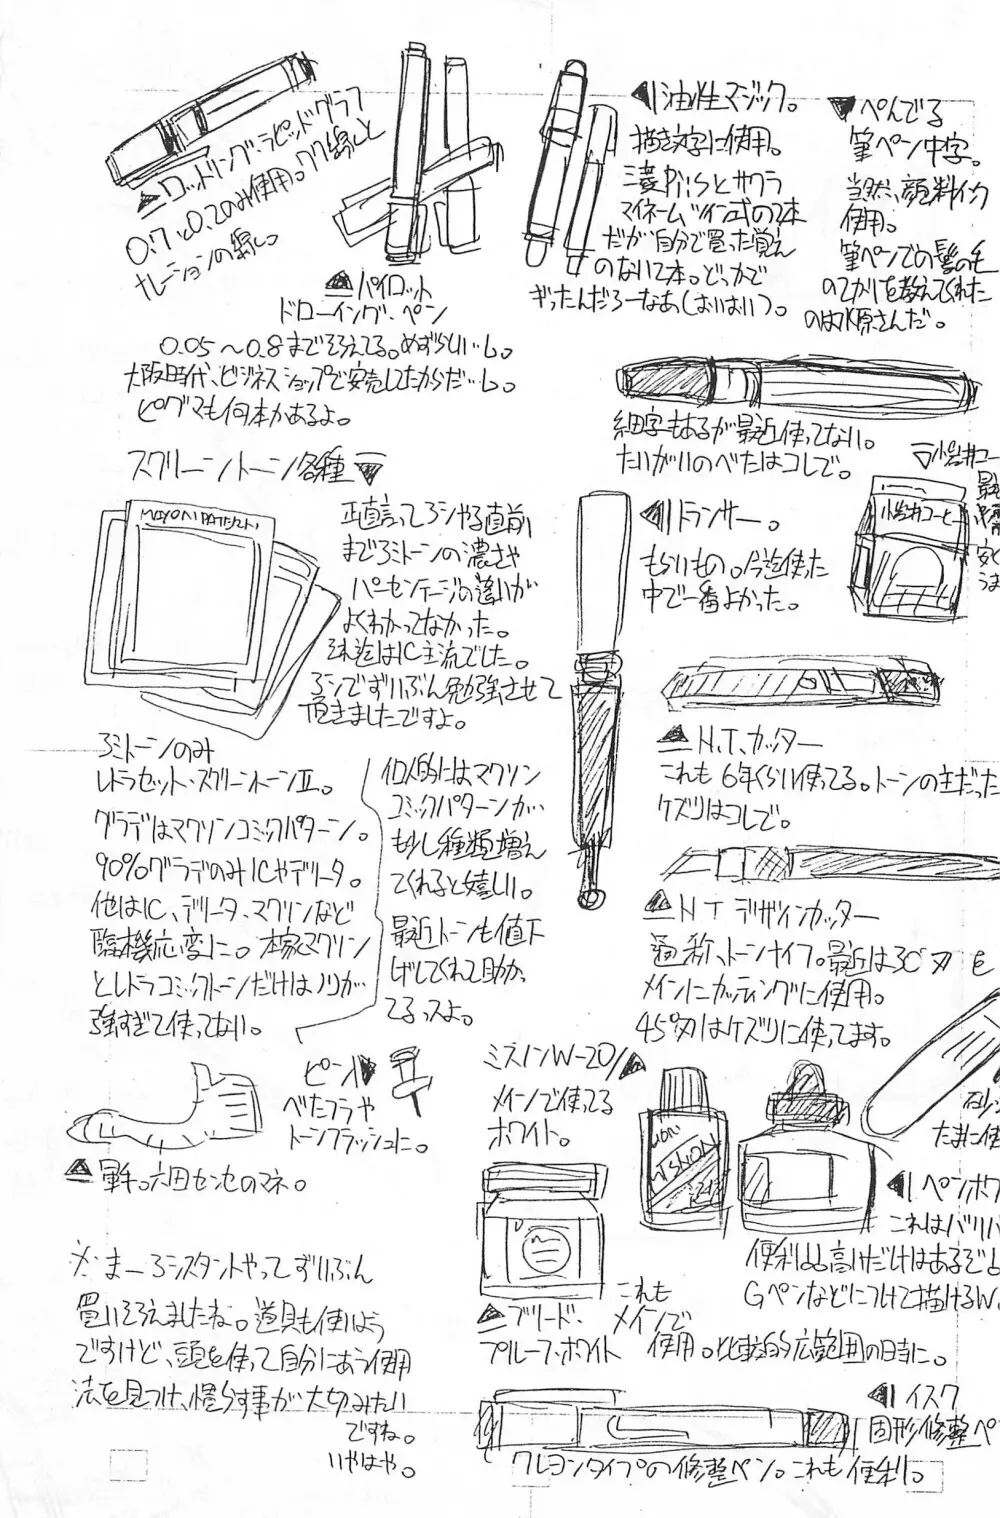 ロットリング・ラピッドグラフ
0.7と0.2のみ使用。ワク線と
ナレーションの線し。
パイロット
ドローイング・ペン
0.05〜0.8までそろえてる。めずらしい…し。
大阪時代、ビジネスショップで安売してたからだ…し。
ピグマも何本かあるよ。
油性マジック。
描き文字に使用。
三菱Piisとサクラ
マイネームツイン式の2本
だが自分で買った覚え
のない2本。どっかで
ぎったんだろーなあ(おいおい)。
ぺんてる
筆ペン中字。
当然、顔料インク
使用。
筆ペンでの髪の毛
のてかりを教えてくれた
のは水原さんだ。
細字もあるが最近使ってない。
たいがいのべたはコレで。
スクリーントーン各種
MAXON PATTERN
正直言ってアシやる直前
までアミトーンの濃さや
パーセンテージの違いが
よくわかってなかった。
それ迄はIC主流でした。
アシでずいぶん勉強させて
頂きましたですよ。
トランサー。
もらいもの。今迄使った
中で一番よかった。
小岩井コー
小岩井コーヒー
最
安く
うま
アミトーンのみ
レトラセット・スクリーントーンⅡ。
グラデはマクソンコミックパターン。
90%グラデのみICやデリータ。
他はIC、デリータ、マクソンなど
臨機応変に。本家マクソン
とレトラコミックトーンだけはノリが
強すぎて使ってない。
個人的にはマクソン
コミックパターンが
も少し種類増え
てくれると嬉しい。
最近トーンも値下
げしてくれて助か
てるっスよ。
N.T.カッター
これも6年くらい使ってる。トーンの主だった
ケズリはコレで。
N T デザインカッター
通称、トーンナイフ。最近は30°刃を
メインにカッティングに使用。
45°刃はケズリに使ってます。
ピンは
べたフラや
トーンフラッシュに。
軍手。六田センセのマネ。
ミスノンW-20
メインで使ってる
ホワイト。
MISNON
砂
たまに使
ペンホワ
これはバリバ
便利。お高いだけはあるぞよ
Gペンなどにつけて描けるW。
ブリード・
プルーフ・ホワイト
これも
メインで
使用。比較的広範囲の時に。
※まーアシスタントやってずいぶん
買いそろえましたね。道具も使いよう
ですけど、頭を使って自分にあう使用
法を見つけ、慣らす事が大切みたい
ですね。
いやはや。
イスク
固形修整ペ
クレヨンタイプの修整ペン。これも便利。